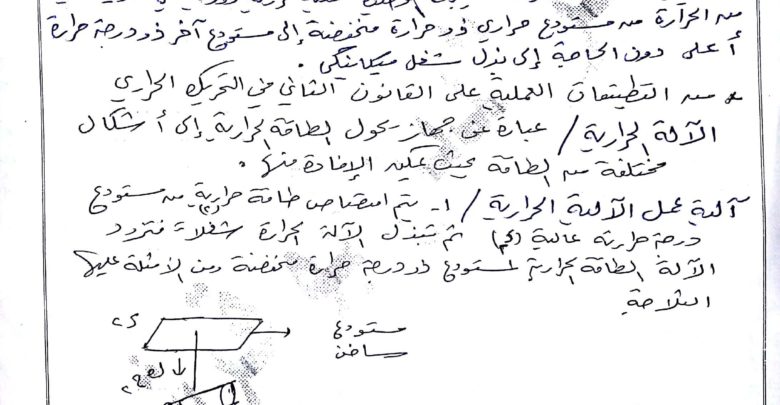 من الحرارة من مستودع حراري ذو حرارة منخفضة إلى مستودع آخر ذو درجة حرارة
أعلى دون الحاجة إلى بذل شغل ميكانيكي.
* من التطبيقات العملية على القانون الثاني في التحريك الحراري
الآلة الحرارية / عبارة عن جهاز يحول الطاقة الحرارية إلى أشكال
مختلفة من الطاقة بحيث يمكن الإفادة منها.
آلية عمل الآلية الحرارية / 1- يتم امتصاص طاقة حرارية من مستودع
درجة حرارته عالية ثم تبذل الآلة الحرارة شغلاً فتزود
الآلة الطاقة الحرارية لمستودع ذو درجة حرارة منخفضة ومن الأمثلة عليها
الثلاجة
مستودع
ساخن